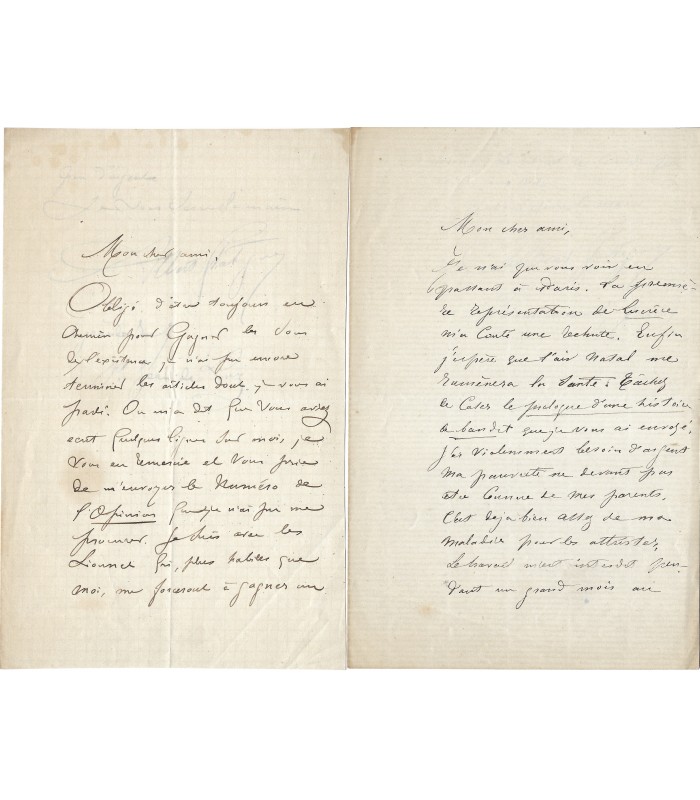 Mon cher ami,
Obligé d'être toujours en
chemin pour gagner les sous
de l'existence, je n'ai pu encore
terminer les articles dont je vous ai
parlé. On m'a dit que vous aviez
ecrit quelques lignes sur moi, je
vous en remercie et vous prie
de m'envoyer le Numéro de
l'Opinion que je n'ai pu me
procurer. Je suis avec les
Lionnet qui, plus habiles que
moi, me forceront à gagner un
Mon cher ami,
Je n'ai que vous voir en
passant à Paris. La premiè-
re représentation de
m'a couté une rechute. Enfin
j'espère que l'air natal me
ramènera la santé. Tachez
de caser le prologue d'une histoire
de bandit que je vous ai envoyé.
J'ai violemment besoin d'argent
ma pauvreté ne devant pas
etre connue de mes parents.
C'est deja bien assez de ma
maladie pour les attrister,
Le travail m'est interdit pen-
dant un grand mois au